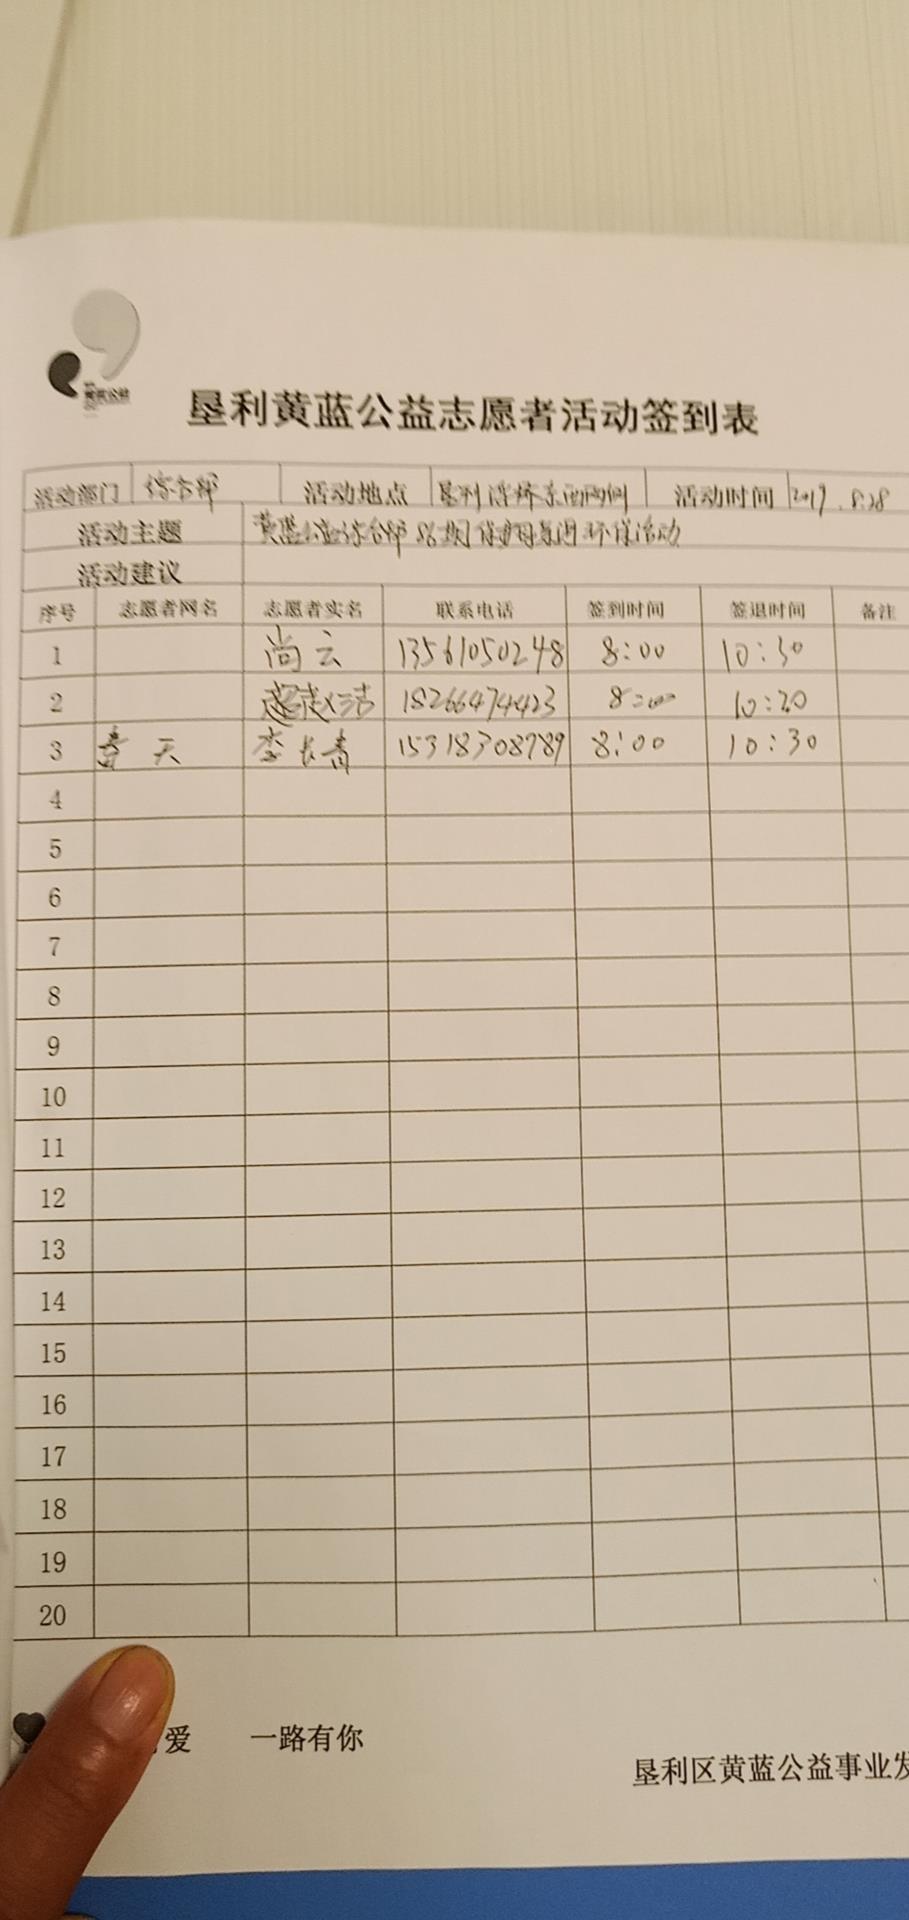 黄蓝公益
垦利黄蓝公益志愿者活动签到表
活动部门 综合部 活动地点 垦利浮桥东西两侧 活动时间 2019.8.28
活动主题 黄蓝公益综合部 86期保护母亲河环保活动
活动建议
序号 志愿者网名 志愿者实名 联系电话 签到时间 签退时间 备注
1 尚云 13561050248 8:00 10:30
2 18266474423 8:00 10:30
3 天 李长青 15318308789 8:00 10:30
4
5
6
7
8
9
10
11
12
13
14
15
16
17
18
19
20
爱 一路有你
垦利区黄蓝公益事业发